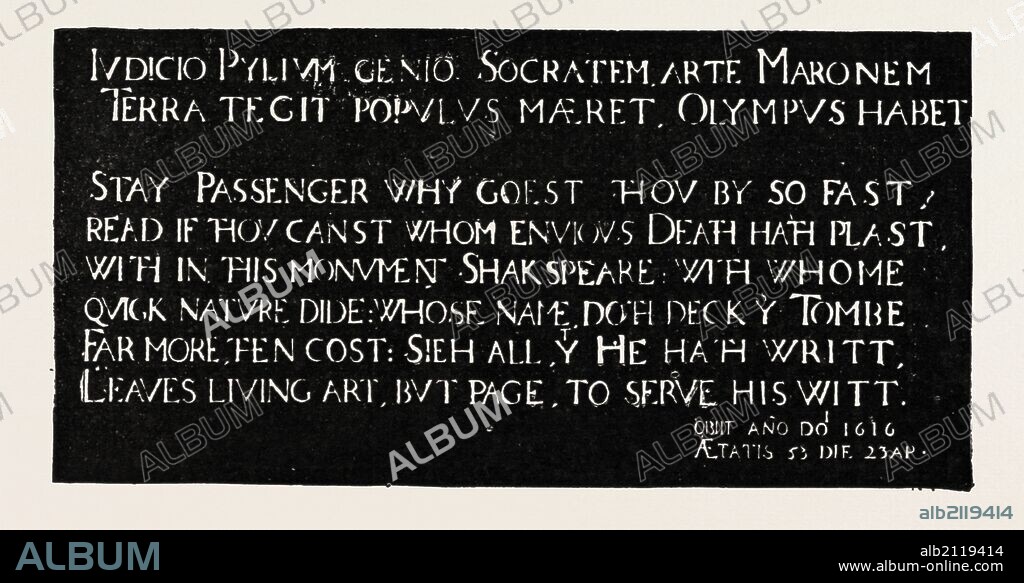 IVDICIO PYLIVM GENIO SOCRATEM, ARTE MARONEM
TERRA TEGIT POPVLVS MÆRET, OLYMPVS HABET
STAY PASSENGER WHY GOEST THOV BY SO FAST,
READ IF THOV CANST WHOM ENVIOVS DEATH HATH PLAST,
WITH IN THIS MONVMENT SHAKSPEARE: WITH WHOME
QVICK NATVRE DIDE: WHOSE NAME, DOTH DECK Y TOMBE
FAR MORE, THEN COST: SIEH ALL, Yᵀ HE HATH WRITT,
LEAVES LIVING ART, BVT PAGE, TO SERVE HIS WITT.
OBIIT AÑO DOⁱ 1616
ÆTATIS 53 DIE 23 AP.
alb2119414
ALBUM
alb2119414
www.album-online.com